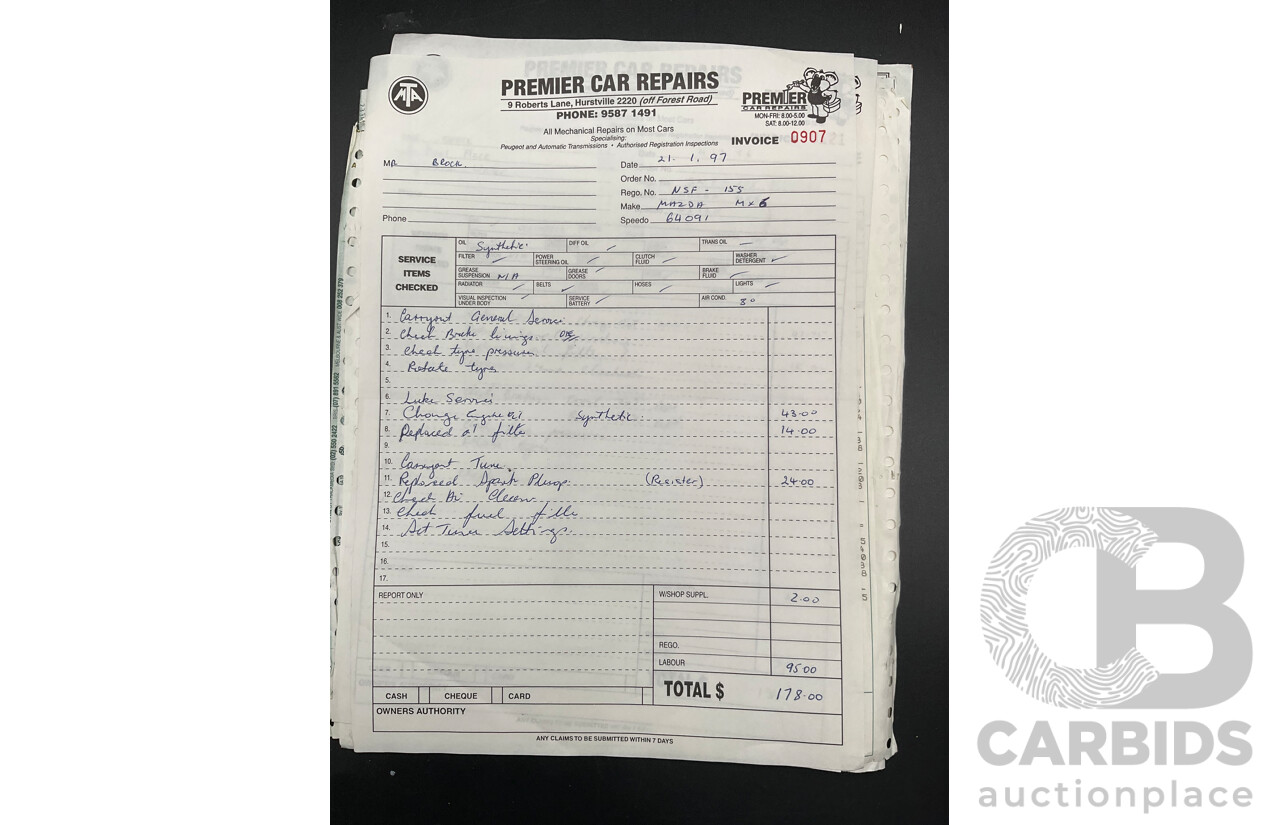 PREMIER CAR REPAIRS
9 Roberts Lane, Hurstville 2220 (off Forest Road)
PHONE: 9587 1491
All Mechanical Repairs on Most Cars
Specialising:
Peugeot and Automatic Transmissions • Authorised Registration Inspections
MTA
PREMIER
CAR REPAIRS
MON-FRI: 8.00-5.00
SAT: 8.00-12.00
INVOICE 0907
MR BROCK
Date 21. 1. 97
Order No.
Rego. No. NSF - 155
Make MAZDA MX6
Phone
Speedo 64091
SERVICE ITEMS CHECKED
OIL Synthetic DIFF OIL TRANS OIL
FILTER POWER STEERING OIL CLUTCH FLUID WASHER DETERGENT
GREASE SUSPENSION N/A GREASE DOORS BRAKE FLUID
RADIATOR BELTS HOSES LIGHTS
VISUAL INSPECTION UNDER BODY SERVICE BATTERY AIR COND. 8°
1. Carryout General Service
2. Check Brake linings
3. Check tyre pressures
4. Rotate tyres
5.
6. Lube Service
7. Change Engine oil Synthetic 43.00
8. Replaced oil filter 14.00
9.
10. Carryout Tune
11. Replaced Spark Plugs (Resister) 24.00
12. Check Air Cleaner
13. Check fuel filter
14. Set Tune Settings.
15.
16.
17.
REPORT ONLY
W/SHOP SUPPL. 2.00
REGO.
LABOUR 95.00
TOTAL $ 178.00
CASH CHEQUE CARD
OWNERS AUTHORITY
ANY CLAIMS TO BE SUBMITTED WITHIN 7 DAYS
CB
CARBIDS
auctionplace